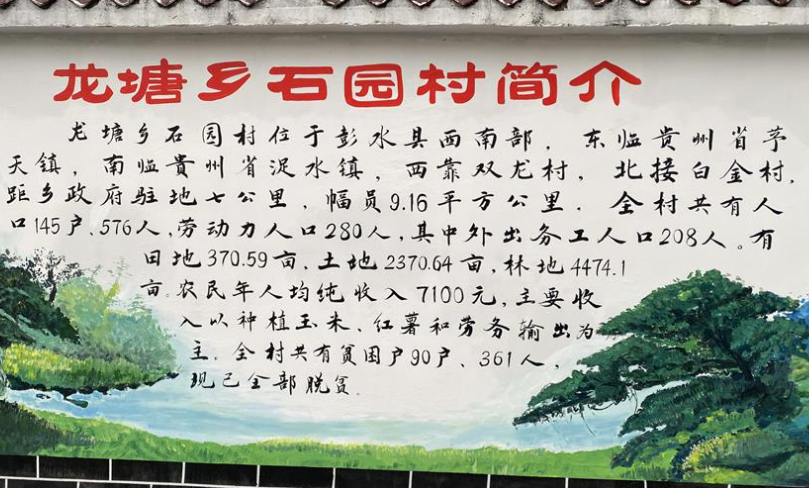 龙塘乡石园村简介
龙塘乡石园村位于彭水县西南部，东临贵州省茅
天镇，南临贵州省浞水镇，西靠双龙村，北接白金村，
距乡政府驻地七公里，幅员9.16平方公里．全村共有人
口145户、576人，劳动力人口280人，其中外出务工人口208人。有
田地370.59亩，土地2370.64亩，林地4474.1
亩。农民年人均纯收入7100元，主要收
入以种植玉米、红薯和劳务输出为
主．全村共有贫困户90户、361人，
现已全部脱贫．